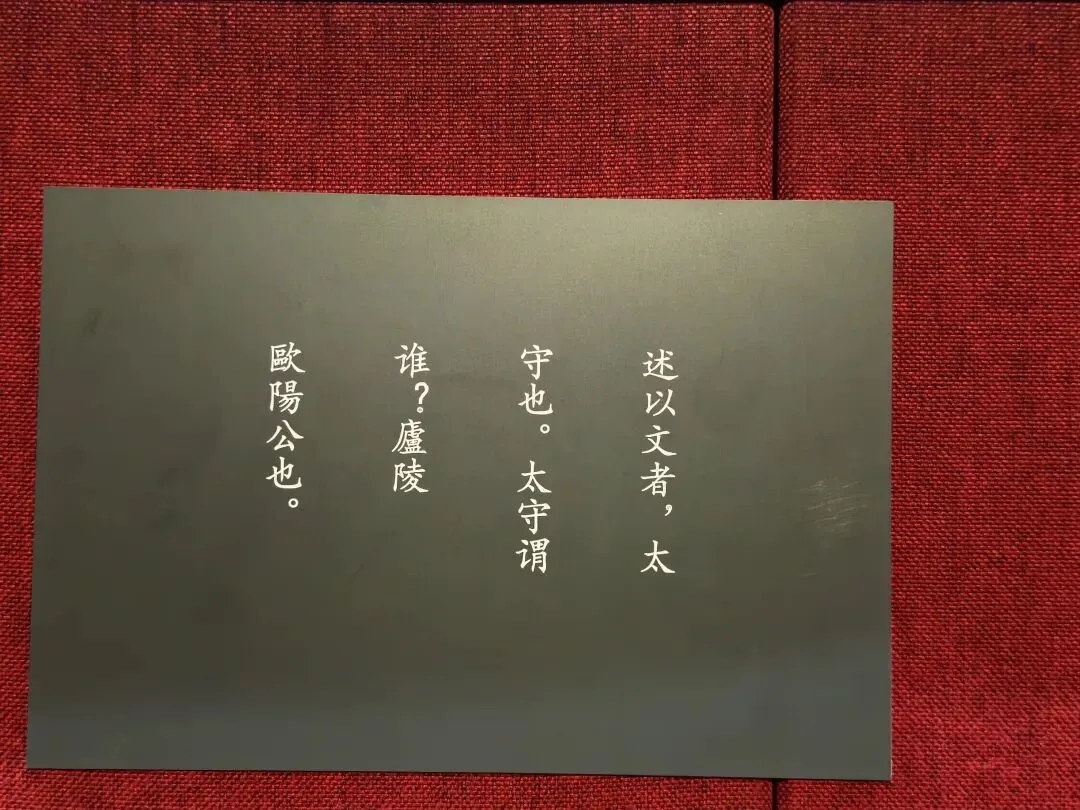 述以文者，太
守也。太守谓
谁？廬陵
歐陽公也。